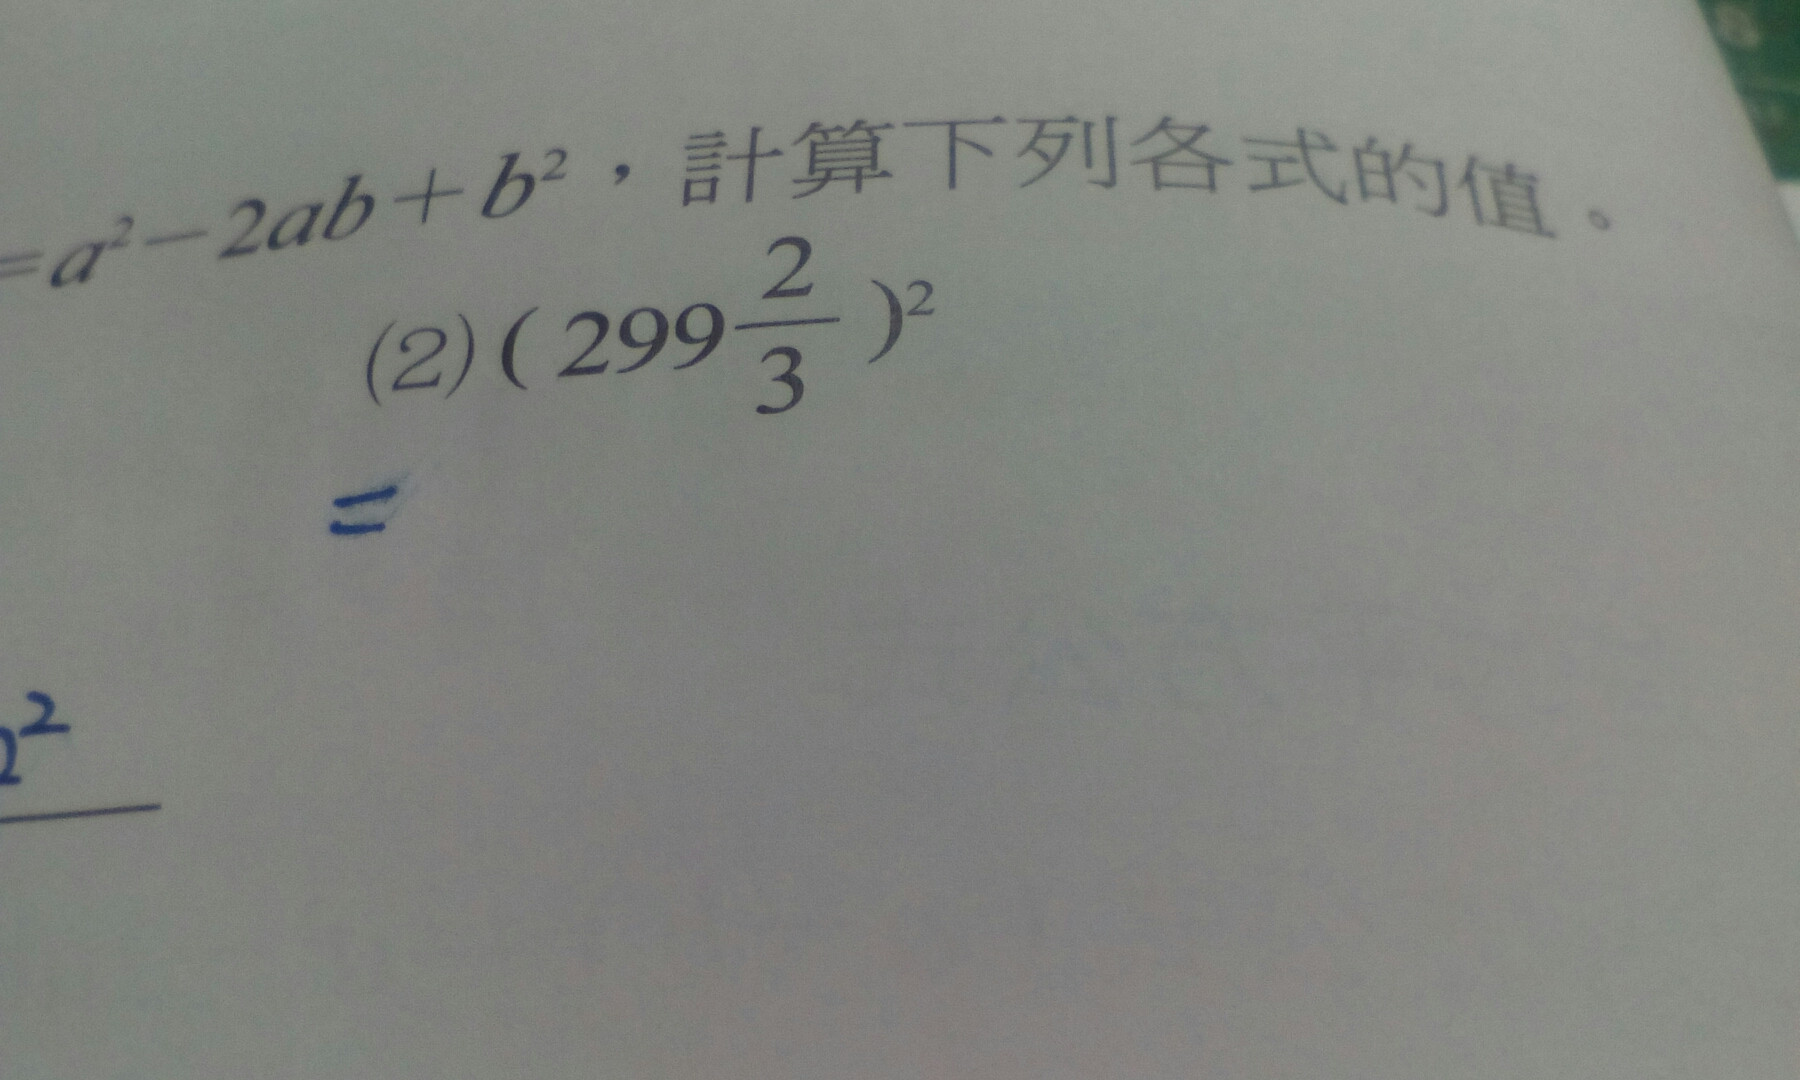 =a²−2ab+b²，計算下列各式的值。
(2)(299 2/3)²
=
²